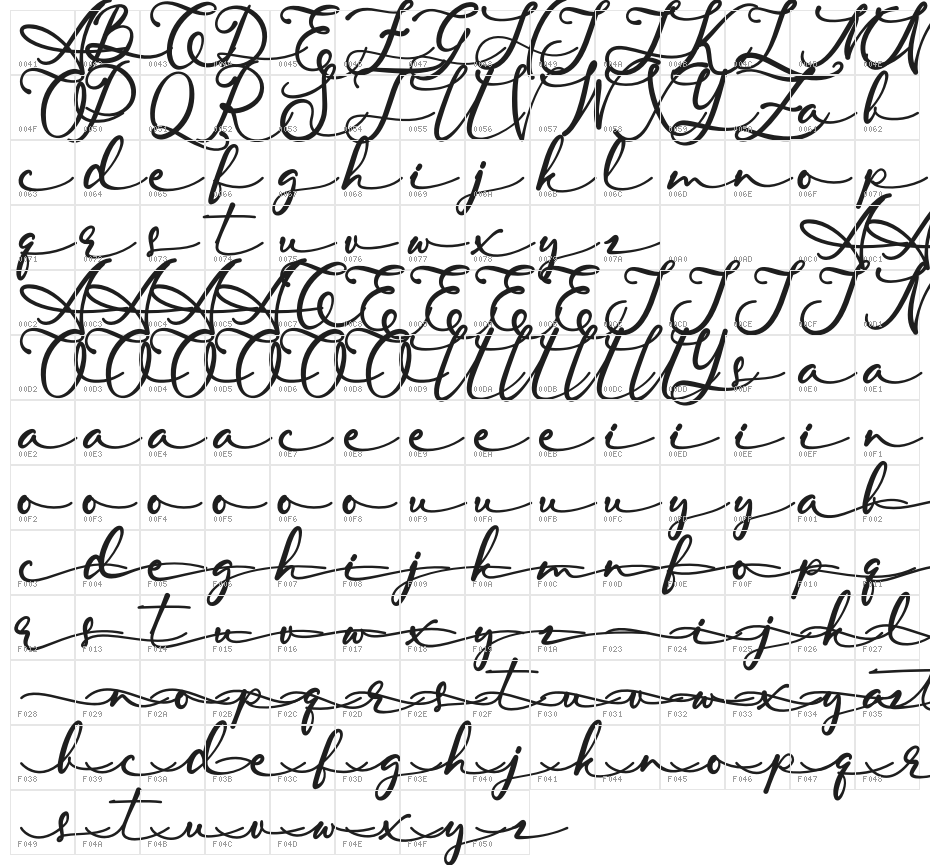 A B C D E F G H I J K L M N
0041 0042 0043 0044 0045 0046 0047 0048 0049 004A 004B 004C 004D 004E
O P Q R S T U V W X Y Z a b
004F 0050 0051 0052 0053 0054 0055 0056 0057 0058 0059 005A 0061 0062
c d e f g h i j k l m n o p
0063 0064 0065 0066 0067 0068 0069 006A 006B 006C 006D 006E 006F 0070
q r s t u v w x y z A A
0071 0072 0073 0074 0075 0076 0077 0078 0079 007A 00A0 00AD 00C0 00C1
A A A A C E E E E I I I I N
00C2 00C3 00C4 00C5 00C7 00C8 00C9 00CA 00CB 00CC 00CD 00CE 00CF 00D1
O O O O O O U U U U Y s a a
00D2 00D3 00D4 00D5 00D6 00D8 00D9 00DA 00DB 00DC 00DD 00DF 00E0 00E1
a a a a c e e e e i i i i n
00E2 00E3 00E4 00E5 00E7 00E8 00E9 00EA 00EB 00EC 00ED 00EE 00EF 00F1
o o o o o o u u u u y y a b
00F2 00F3 00F4 00F5 00F6 00F8 00F9 00FA 00FB 00FC 00FD 00FF F001 F002
c d e g h i j k m n f o p q
F003 F004 F005 F006 F007 F008 F009 F00A F00C F00D F00E F00F F010 F011
r s t u v w x y z i j k l
F012 F013 F014 F015 F016 F017 F018 F019 F01A F023 F024 F025 F026 F027
n o p q r s t u v w x y
F028 F029 F02A F02B F02C F02D F02E F02F F030 F031 F032 F033 F034 F035
b c d e f g h j k n o p q r
F038 F039 F03A F03B F03C F03D F03E F040 F041 F044 F045 F046 F047 F048
s t u v w x y z
F049 F04A F04B F04C F04D F04E F04F F050